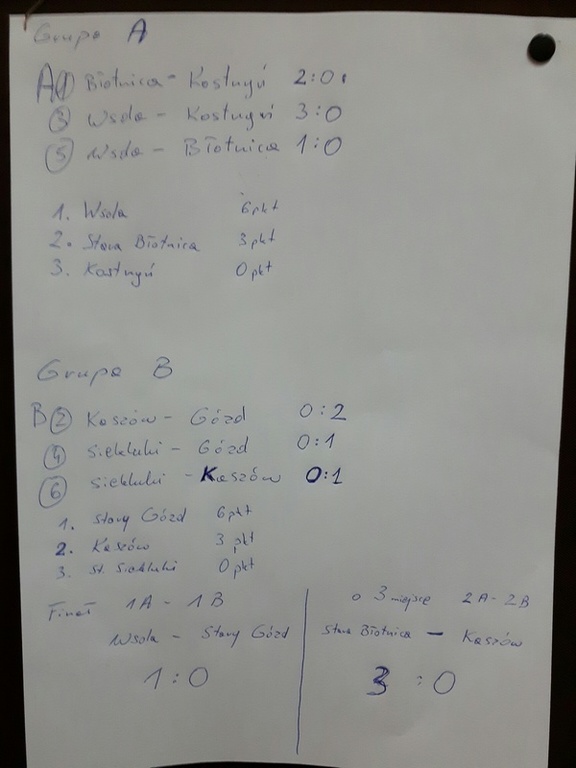 Grupa A
A① Błotnica - Kostrzyń 2:0
③ Wsola - Kostrzyń 3:0
⑤ Wsola - Błotnica 1:0
1. Wsola 6 pkt
2. Stara Błotnica 3 pkt
3. Kostrzyń 0 pkt
Grupa B
B② Kaszów - Gózd 0:2
④ Siekluki - Gózd 0:1
⑥ Siekluki - Kaszów 0:1
1. Stary Gózd 6 pkt
2. Kaszów 3 pkt
3. St. Siekluki 0 pkt
Finał 1A - 1B
Wsola - Stary Gózd
1:0
o 3 miejsce 2A - 2B
Stara Błotnica - Kaszów
3:0